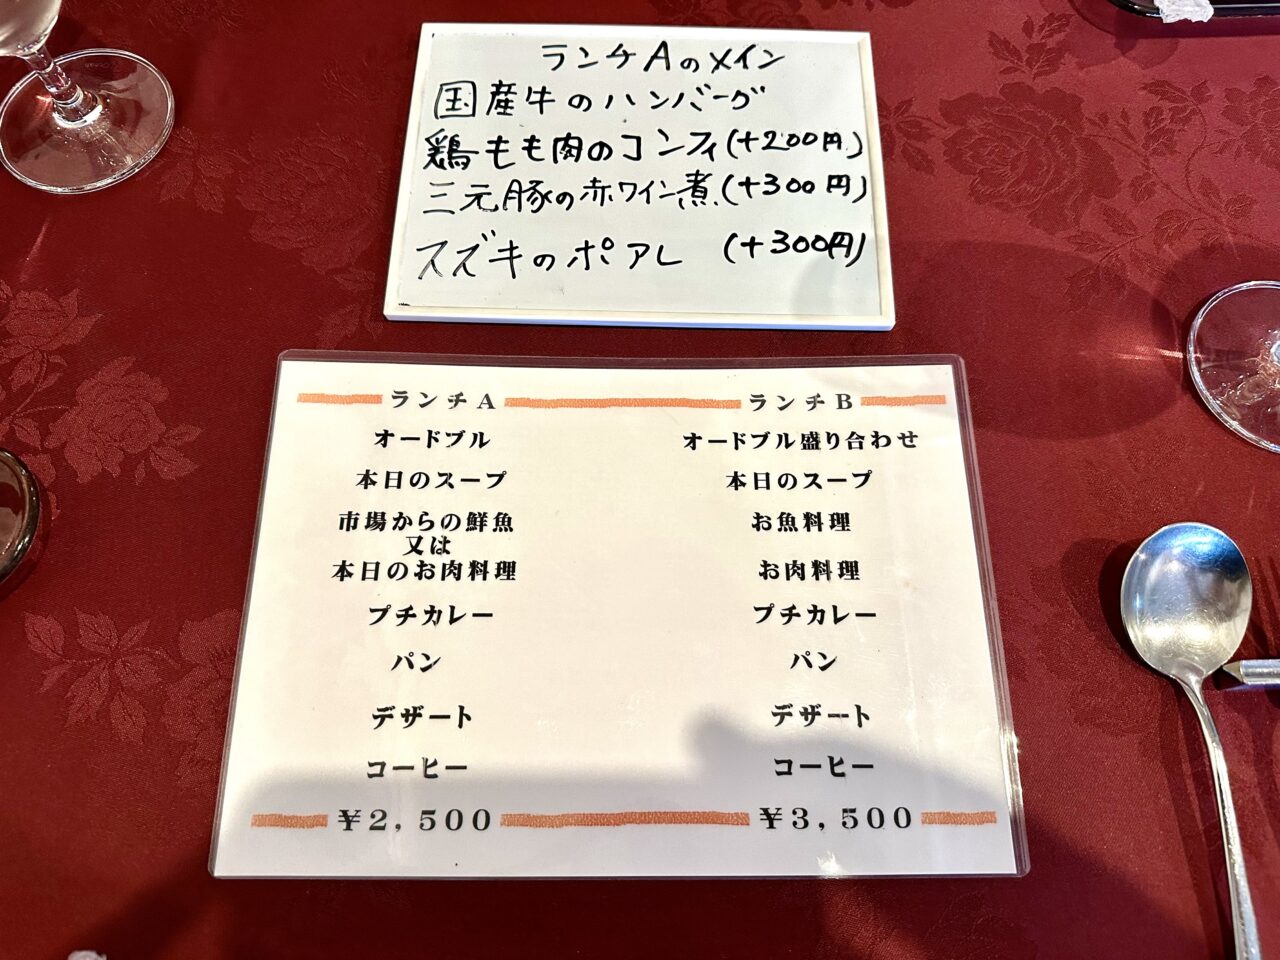 ランチAのメイン
国産牛のハンバーグ
鶏もも肉のコンフィ(+200円)
三元豚の赤ワイン煮(+300円)
スズキのポアレ (+300円)
ランチA
オードブル
本日のスープ
市場からの鮮魚
又は
本日のお肉料理
プチカレー
パン
デザート
コーヒー
¥2,500
ランチB
オードブル盛り合わせ
本日のスープ
お魚料理
お肉料理
プチカレー
パン
デザート
コーヒー
¥3,500